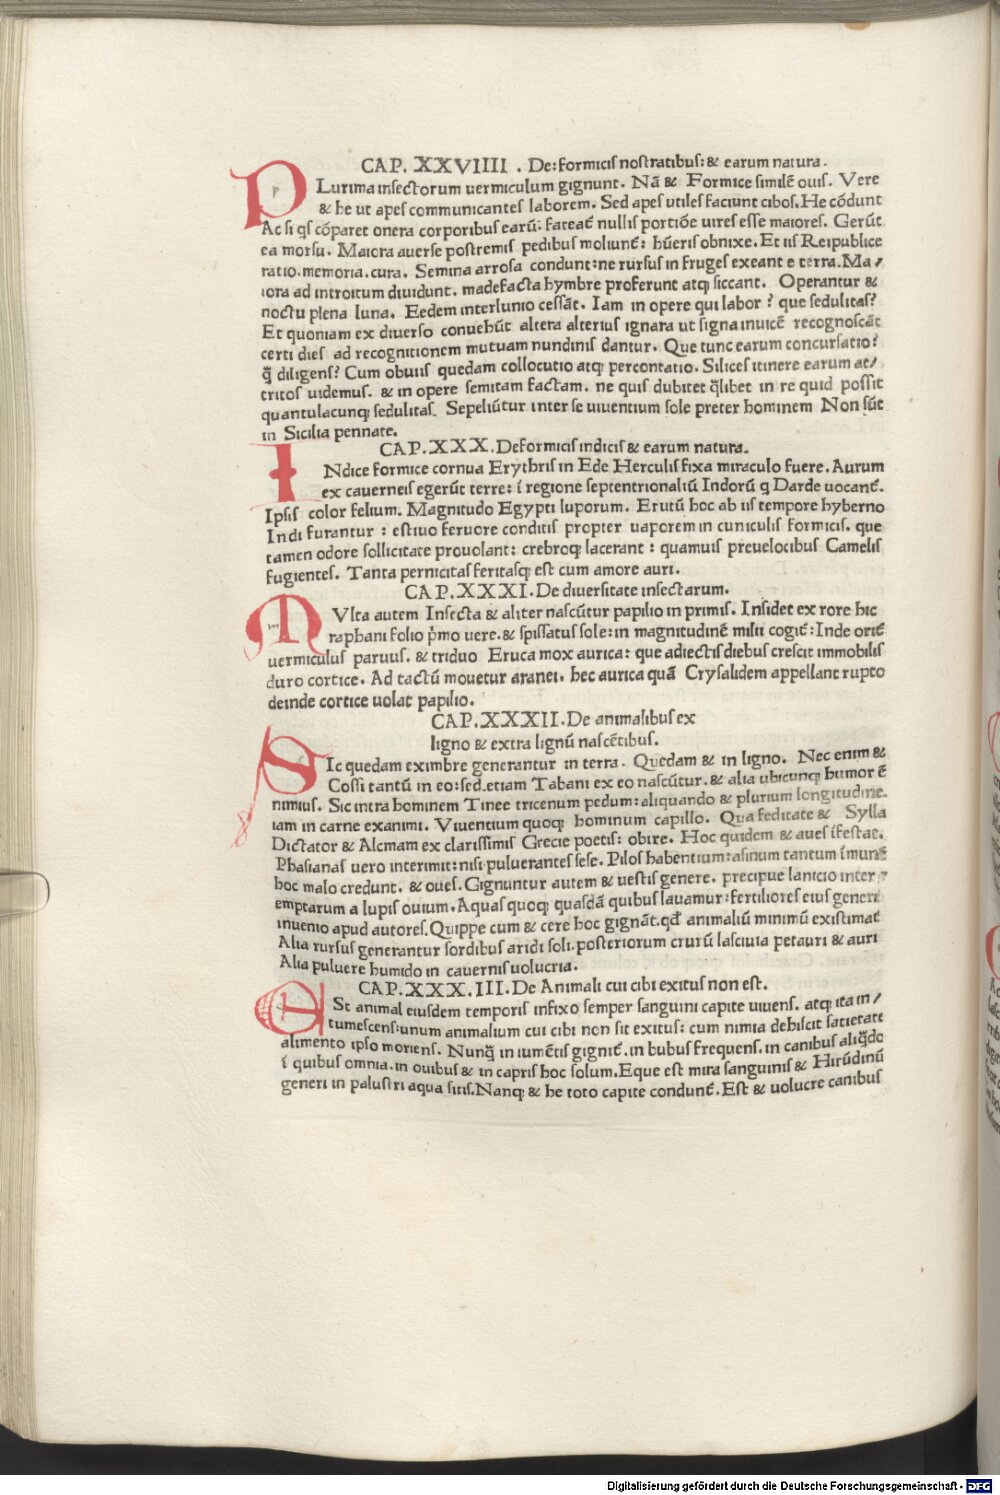 CAP. XXVIIII. De: formicis nostratibus: & earum natura.
PLurima insectorum uermiculum gignunt. Nã & Formice similẽ ouis. Vere
& he ut apes communicantes laborem. Sed apes utiles faciunt cibos. He cõdunt
Ac si qs cõparet onera corporibus earũ: fateat̃ nullis portiõe uires esse maiores. Gerũt
ea morsu. Maiora auerse postremis pedibus moliunt̃: hũeris obnixe. Et iis Reipublice
ratio. memoria. cura. Semina arrosa condunt: ne rursus in fruges exeant e terra. Ma/
iora ad introitum diuidunt. madefacta hymbre proferunt atq; siccant. Operantur &
noctu plena luna. Eedem interlunio cessãt. Iam in opere qui labor? que sedulitas?
Et quoniam ex diuerso conuehũt altera alterius ignara ut signa inuicẽ recognoscãt
certi dies ad recognitionem mutuam nundinis dantur. Que tunc earum concursatio?
q̃ diligens? Cum obuiis quedam collocutio atq; percontatio. Silices itinere earum at/
tritos uidemus. & in opere semitam factam. ne quis dubitet q̃libet in re quid possit
quantulacunq; sedulitas. Sepeliũtur inter se uiuentium sole preter hominem Non sũt
in Sicilia pennate.
CAP. XXX. De formicis indicis & earum natura.
INdice formice cornua Erythris in Ede Herculis fixa miraculo fuere. Aurum
ex cauerneis egerũt terre: ĩ regione septentrionaliũ Indorũ q Darde uocant̃.
Ipsis color felium. Magnitudo Egypti luporum. Erutũ hoc ab iis tempore hyberno
Indi furantur: estiuo feruore conditis propter uaporem in cuniculis formicis. que
tamen odore sollicitate prouolant: crebroq; lacerant: quamuis preuelocibus Camelis
fugientes. Tanta pernicitas feritasq; est cum amore auri.
CAP. XXXI. De diuersitate insectarum.
MVlta autem Insecta & aliter nascũtur papilio in primis. Insidet ex rore hic
raphani folio p̃mo uere. & spissatus sole: in magnitudinẽ milii cogit̃: Inde orit̃
uermiculus paruus. & triduo Eruca mox aurica: que adiectis diebus crescit immobilis
duro cortice. Ad tactũ mouetur aranei. hec aurica quã Crysalidem appellant rupto
deinde cortice uolat papilio.
CAP. XXXII. De animalibus ex
ligno & extra lignũ nascẽtibus.
SIc quedam eximbre generantur in terra. Quedam & in ligno. Nec enim &
Cossi tantũ in eo: sed. etiam Tabani ex eo nascũtur. & alia ubicunq; humor ẽ
nimius. Sic intra hominem Tinee tricenum pedum: aliquando & plurium longitudine.
iam in carne exanimi. Viuentium quoq; hominum capillo. Qua feditate & Sylla
Dictator & Alcmam ex clarissimis Grecie poetis: obire. Hoc quidem & aues ĩfestat.
Phasianas uero interimit: nisi puluerantes sese. Pilos habentium: asinum tantum ĩmunẽ
hoc malo credunt. & oues. Gignuntur autem & uestis genere. precipue lanicio inter/
emptarum a lupis ouium. Aquas quoq; quasdã quibus lauamur: fertiliores eius generi
inuenio apud autores. Quippe cum & cere hoc gignãt. qđ animaliũ minimũ existimat̃
Alia rursus generantur sordibus aridi soli. posteriorum crurũ lasciuia petauri & auri
Alia puluere humido in cauernis uolucria.
CAP. XXX.III. De Animali cui cibi exitus non est.
ESt animal eiusdem temporis infixo semper sanguini capite uiuens. atq; ita in/
tumescens: unum animalium cui cibi non sit exitus: cum nimia dehiscit satietate
alimento ipso moriens. Nunq̃ in iumẽtis gignit̃. in bubus frequens. in canibus aliq̃do
ĩ quibus omnia. in ouibus & in capris hoc solum. Eque est mira sanguinis & Hirũdinũ
generi in palustri aqua sitis. Nanq; & he toto capite condunt̃. Est & uolucre canibus
Digitalisierung gefördert durch die Deutsche Forschungsgemeinschaft - DFG